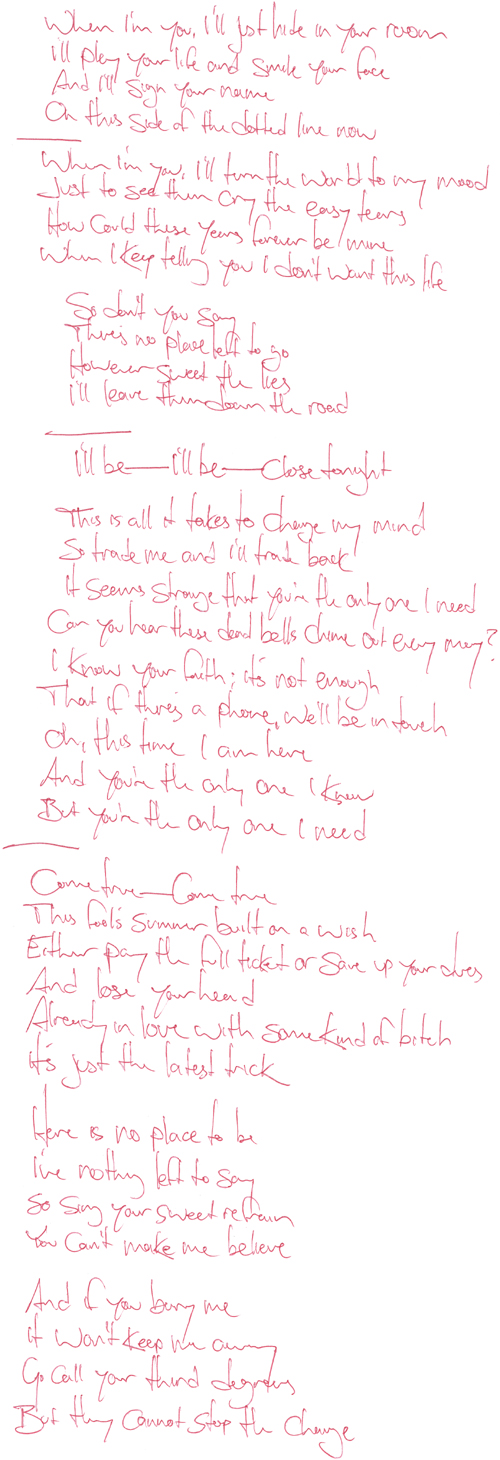 When I'm you, I'll just hide in your room
I'll play your life and smile your face
And I'll sign your name
On this side of the dotted line now
When I'm you, I'll turn the world to my mood
Just to see them cry the easy tears
How could these years forever be mine
When I keep telling you I don't want this life
So don't you say
There's no place left to go
However sweet the lies
I'll leave them down the road
I'll be—I'll be—close tonight
This is all it takes to change my mind
So trade me and I'll trade back
It seems strange that you're the only one I need
Can you hear these dead bells chime out every
I know your faith; it's not enough
That if there's a phone, we'll be in touch
Oh, this time I am here
And you're the only one I knew
But you're the only one I need
Come true—Come true
This fool's summer built on a wish
Either pay the full ticket or save up your dues
And lose your head
Already in love with some kind of bitch
It's just the latest trick
Here is no place to be
I've nothing left to say
So sing your sweet refrain
You can't make me believe
And if you bury me
It won't keep me away
Go call your third degrees
But they cannot stop the change